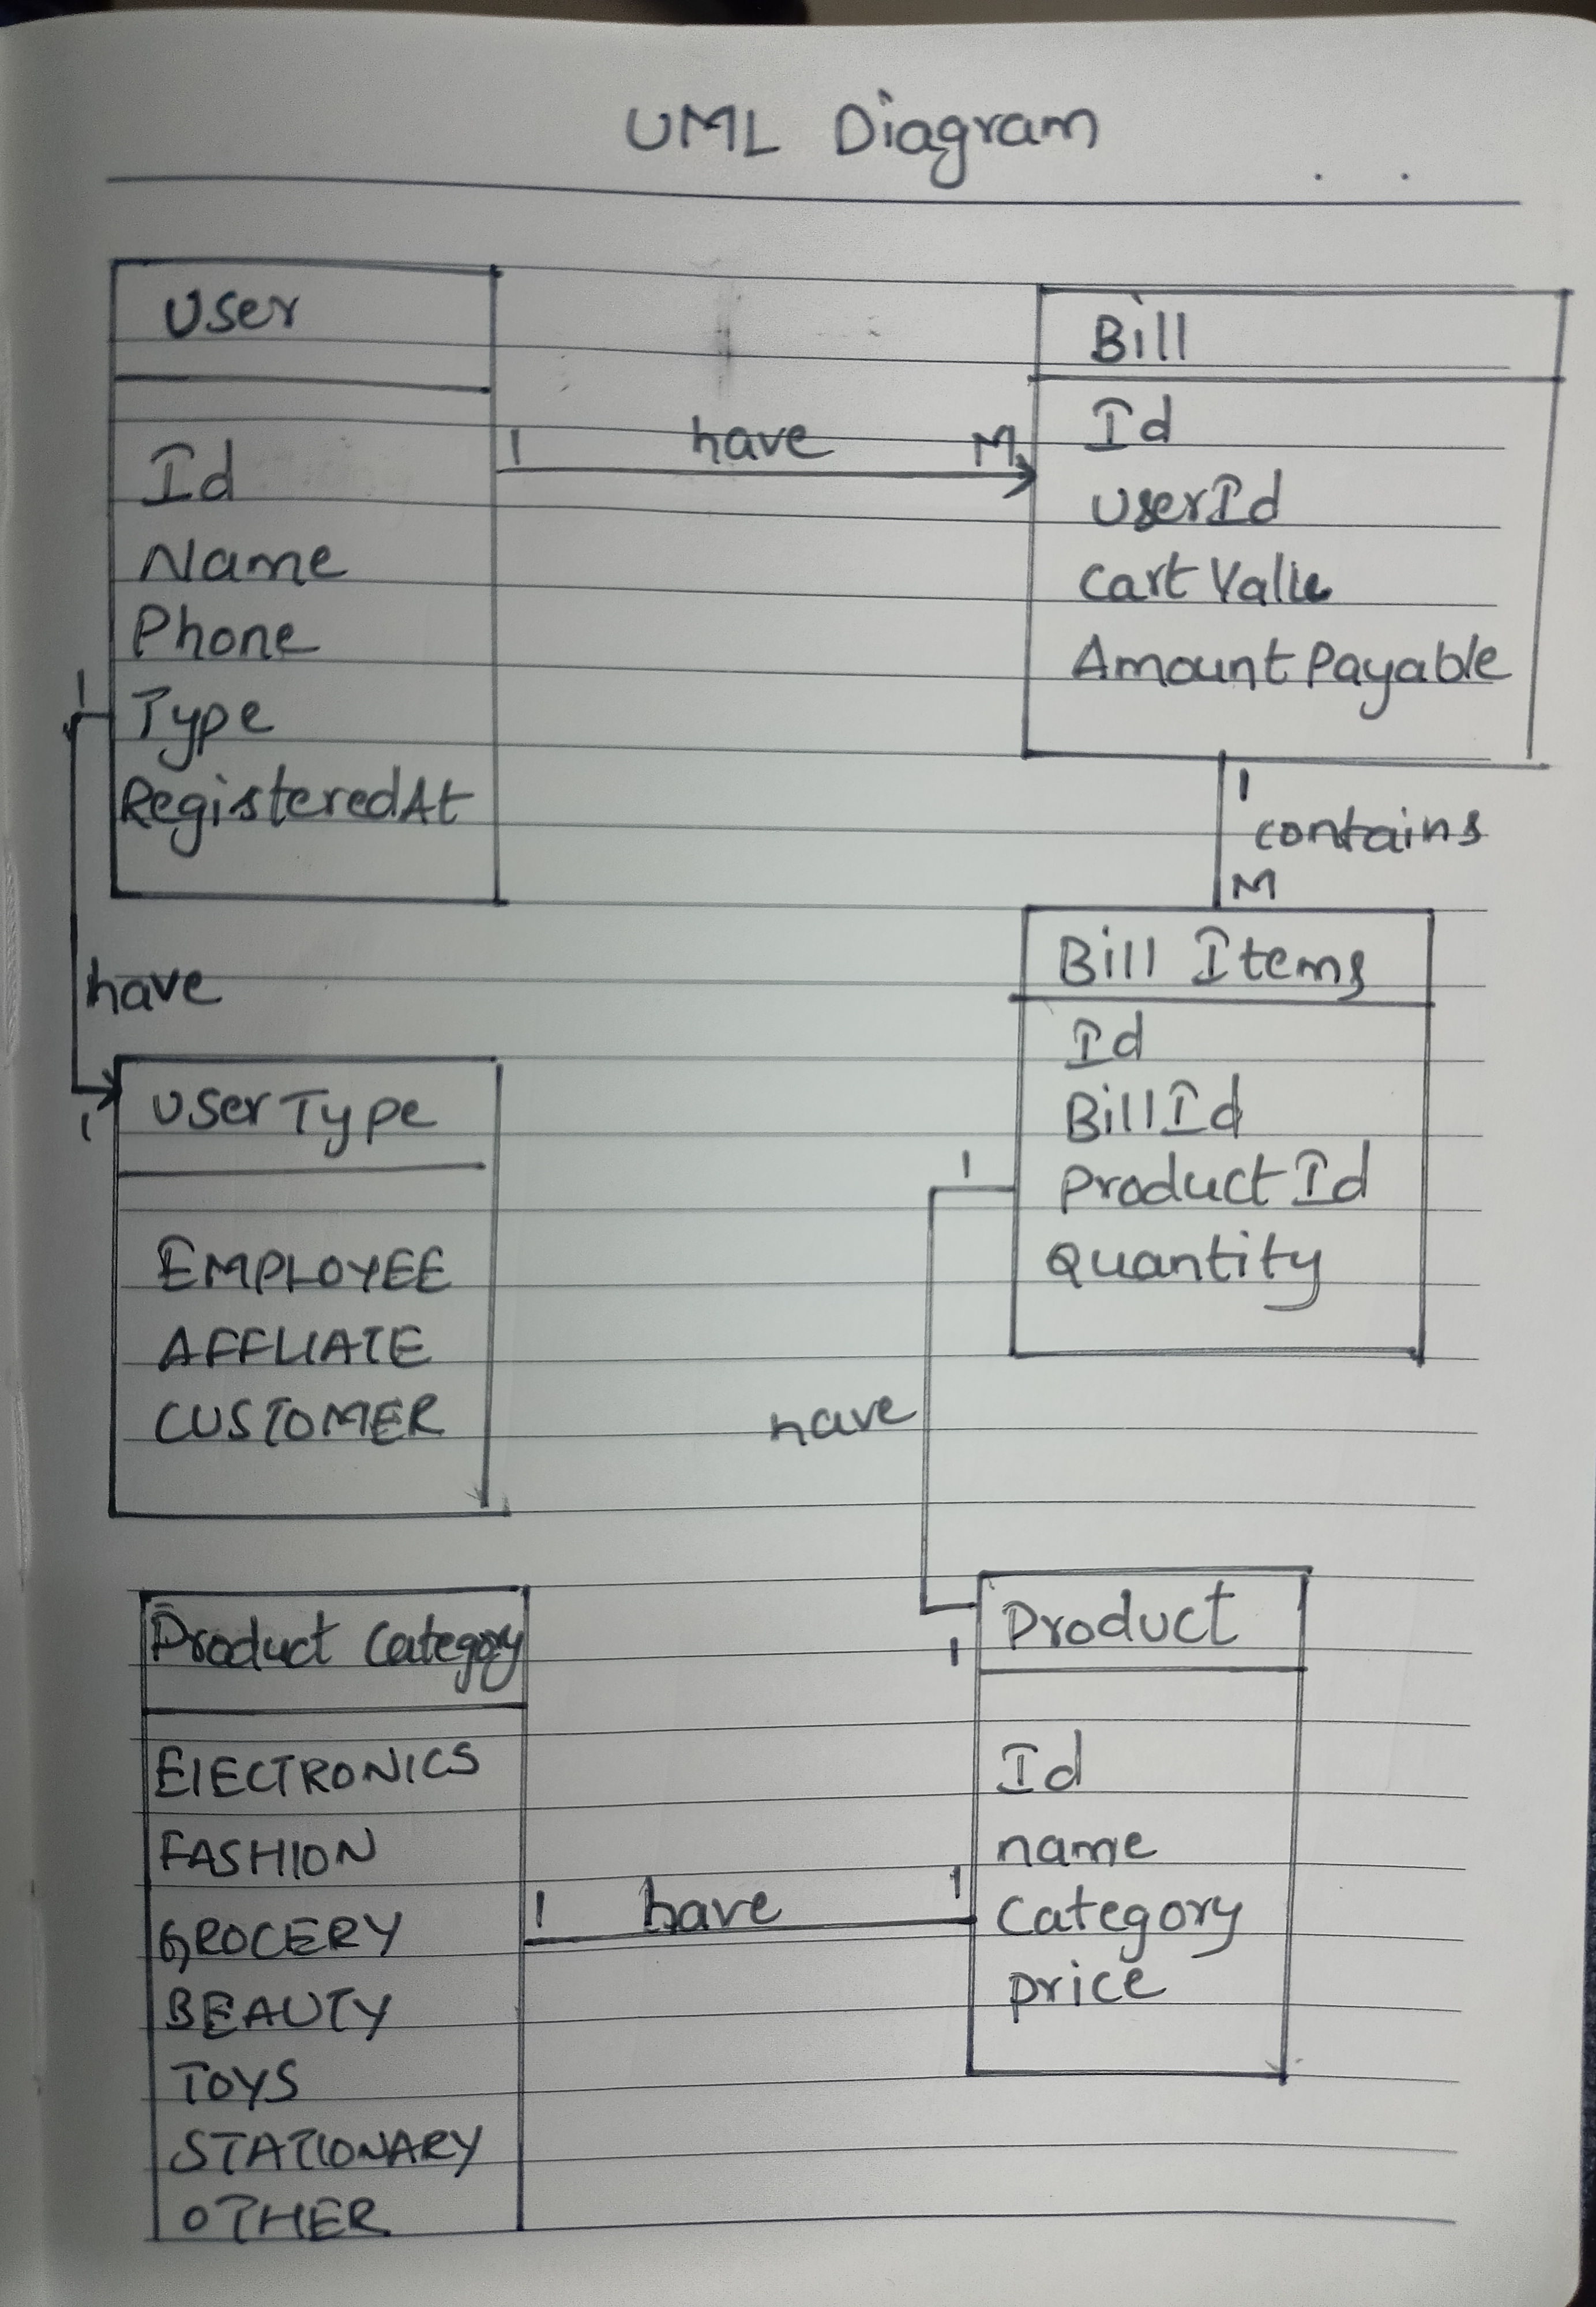 UML Diagram
User
Id
Name
Phone
Type
RegisteredAt
1 have M
Bill
Id
UserId
Cart Value
Amount Payable
1
contains
M
1
have
1
UserType
EMPLOYEE
AFFLIATE
CUSTOMER
Bill Items
Id
BillId
Product Id
Quantity
1
have
1
Product Category
ElECTRONICS
FASHION
GROCERY
BEAUTY
TOYS
STATIONARY
OTHER
1 have 1
Product
Id
name
Category
price